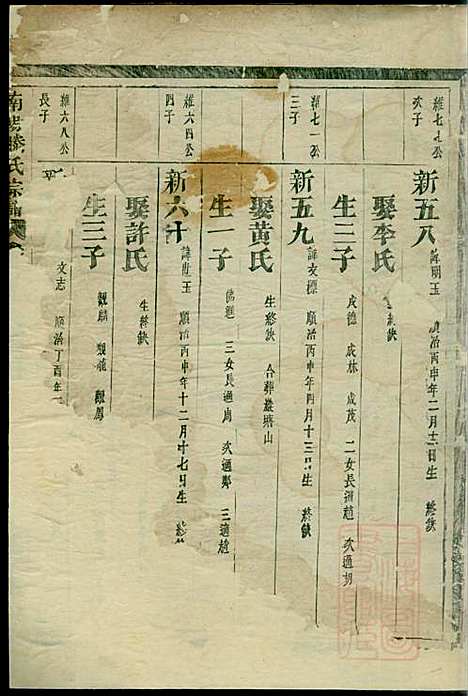 維七九公
次子
新五八 諱朋玉 順治丙申年二月十二日生 終缺
娶李氏 生終缺
生三子 成德 成林 成茂 二女長適趙 次適胡
維七一公
三子
新五九 諱文標 順治丙申年四月十三日生 終缺
娶黃氏 生終缺 合葬叢塘山
生一子 三女長適周 次適鄭 三適趙
維六四公
四子
新六十 玉 順治丙申年十二月十七日生 終缺
娶許氏 生終缺
生三子 觀麟 觀龍 觀鳳
維六八公
長子
文志 順治丁酉年
南陽滕氏宗譜